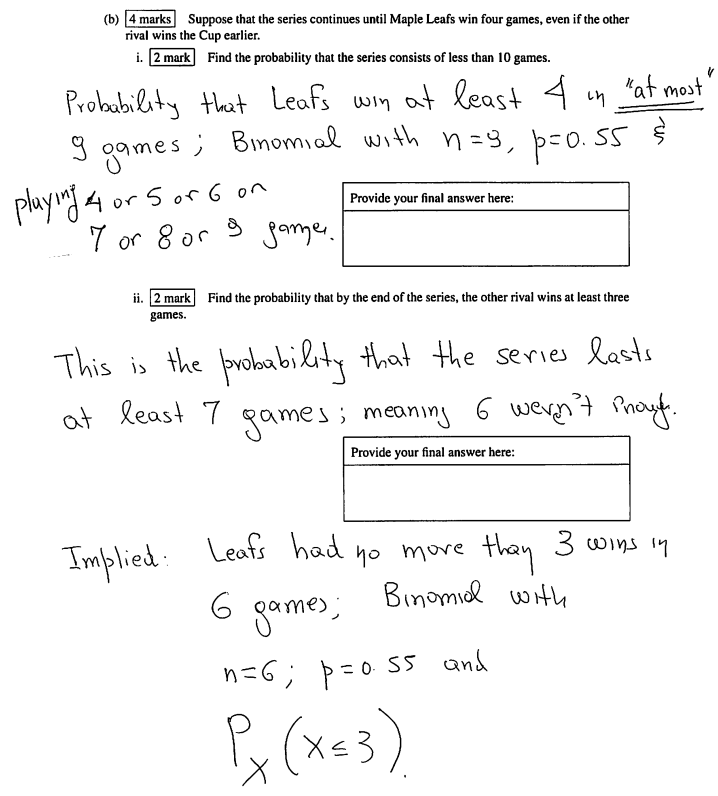 (b) 4 marks Suppose that the series continues until Maple Leafs win four games, even if the other
rival wins the Cup earlier.
i. 2 mark Find the probability that the series consists of less than 10 games.
Probability that Leafs win at least 4 in "at most"
9 games; Binomial with n=9, p=0.55 &
playing 4 or 5 or 6 or
7 or 8 or 9 games.
Provide your final answer here:
ii. 2 mark Find the probability that by the end of the series, the other rival wins at least three
games.
This is the probability that the series lasts
at least 7 games; meaning 6 weren't enough.
Provide your final answer here:
Implied: Leafs had no more than 3 wins in
6 games; Binomial with
n=6; p=0.55 and
P_X (X≤3).